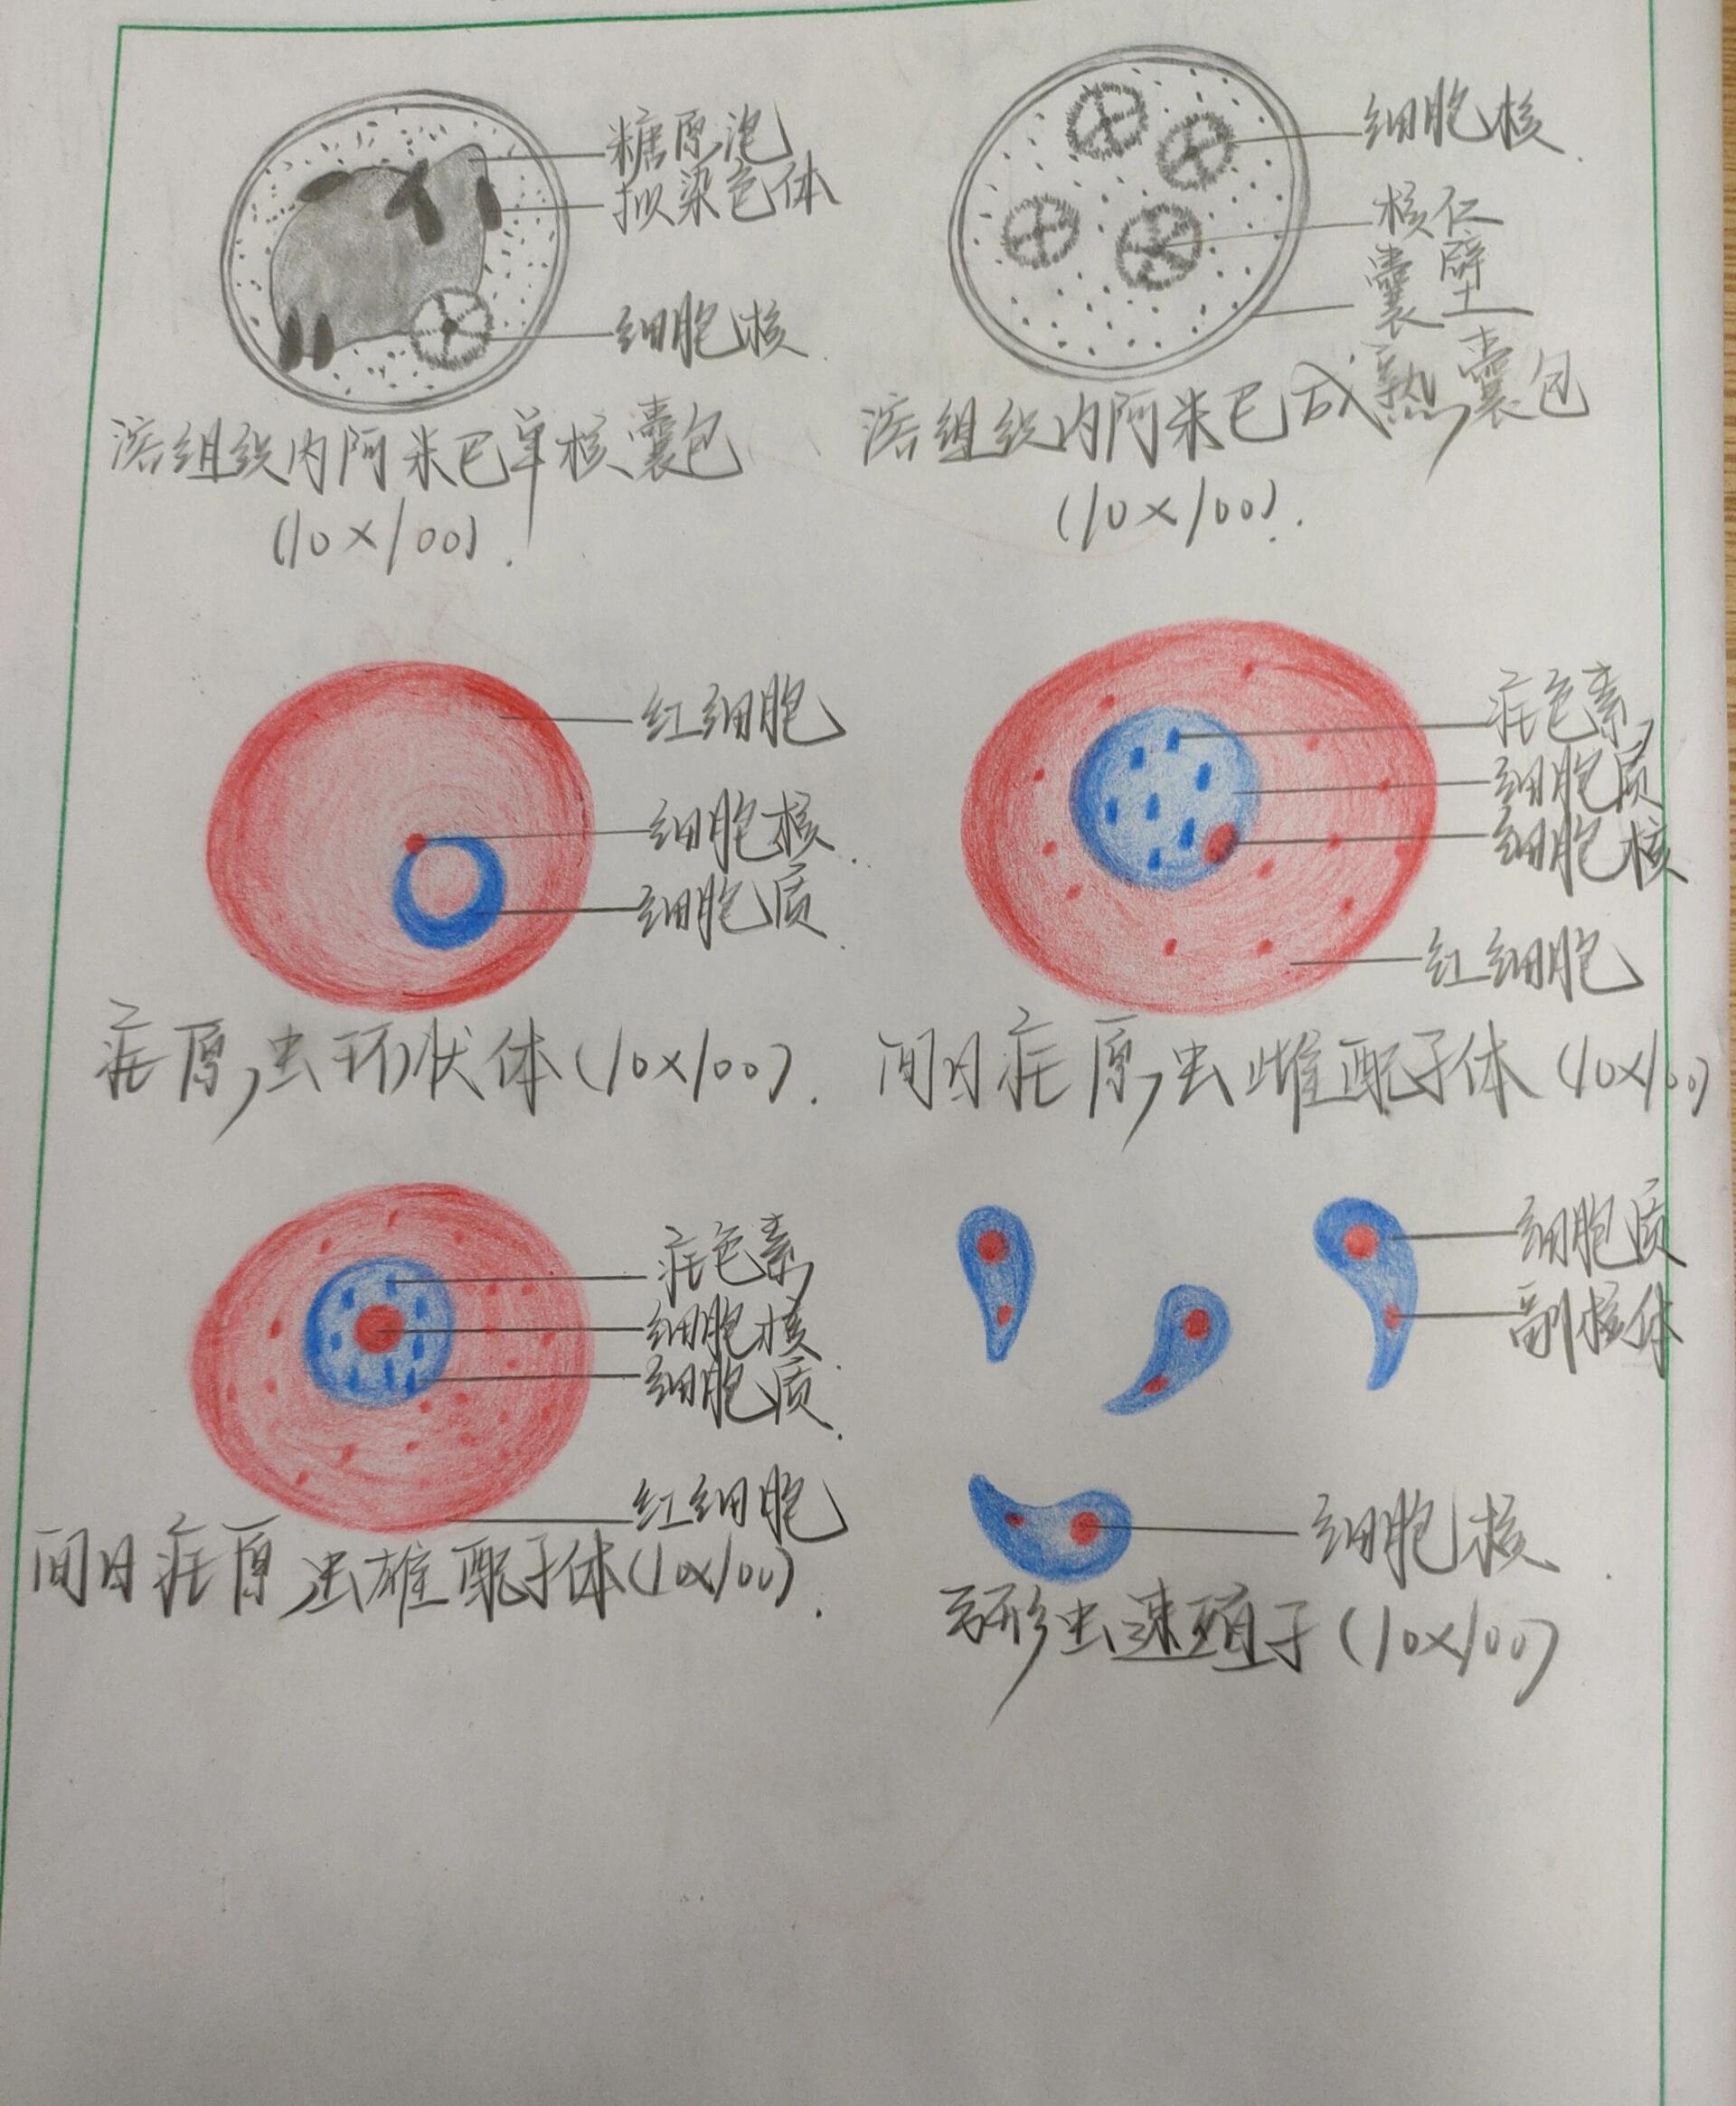 糖原泡
拟染色体
细胞核
溶组织内阿米巴单核囊包
(10×100).
细胞核
核仁
囊壁
溶组织内阿米巴成熟囊包
(10×100).
红细胞
细胞核
细胞质
疟原虫环状体(10×100).
疟色素
细胞质
细胞核
红细胞
间日疟原虫雌配子体(10×100)
疟色素
细胞核
细胞质
红细胞
间日疟原虫雄配子体(10×100).
细胞质
副核体
细胞核
弓形虫速殖子(10×100)